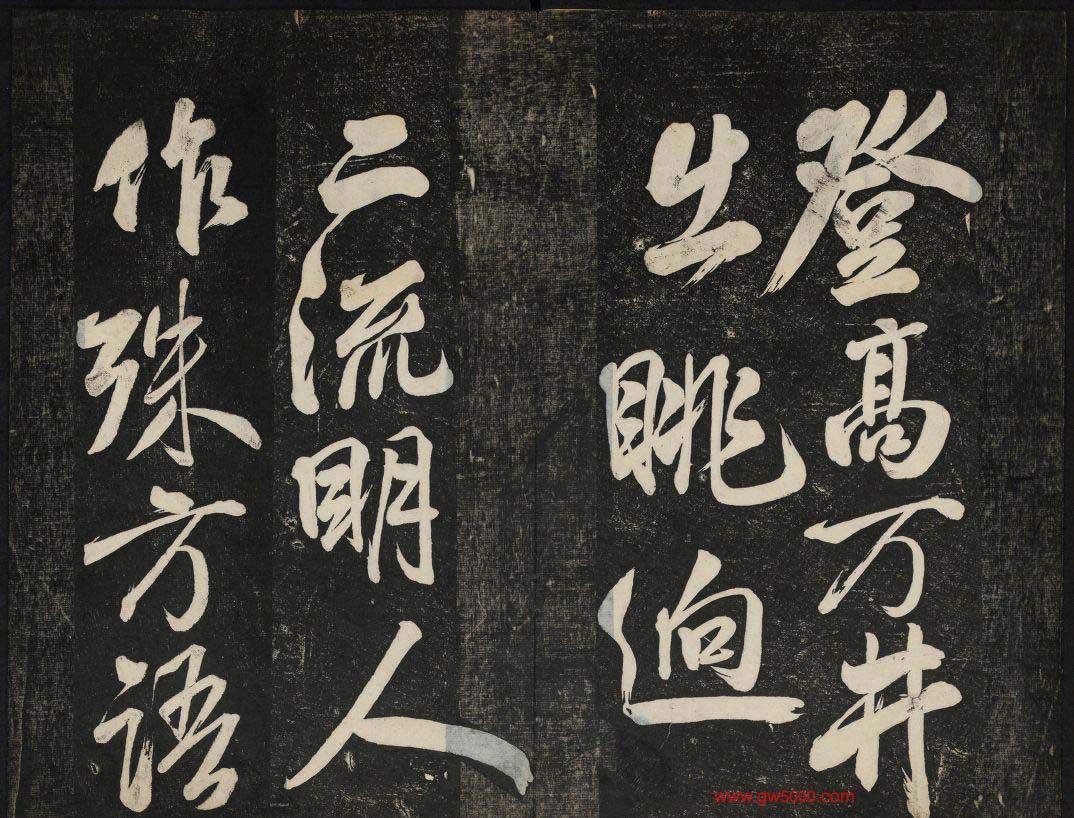 登髙万井
出眺逈
二流明人
作殊方语
www.gw5000.com